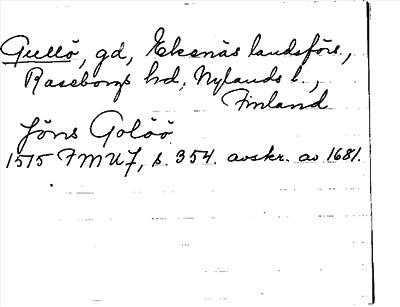 Gullö, gd, Ekenäs landsförs.,
Raseborgs hd, Nylands l.,
Finland
Jöns Golöö
1515 FMU 7, s. 354. avskr. av 1681.